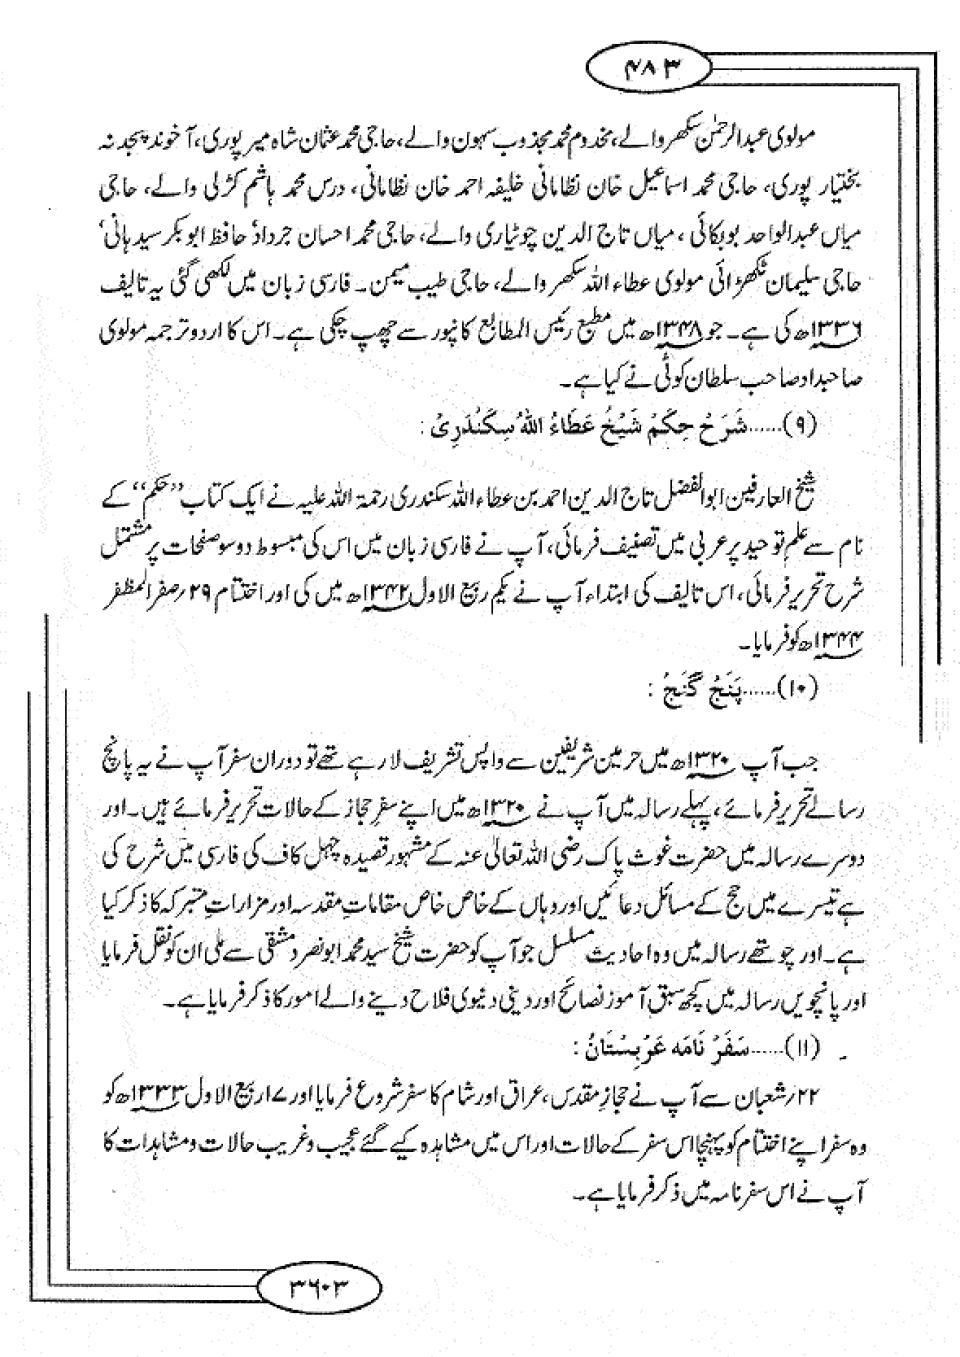 ۴۸۳
مولوی عبدالرحمٰن سکھر والے، مخدوم محمد مجذوب سہون والے، حاجی محمد عثمان شاہ میر پوری، آخوند پنجدنہ
بختیار پوری، حاجی محمد اسماعیل خان نظامانی خلیفہ احمد خان نظامانی، درس محمد ہاشم کڑلی والے، حاجی
میاں عبدالواحد بوبکائی، میاں تاج الدین چوٹیاری والے، حاجی محمد احسان جرداد‘ حافظ ابوبکر سید ہانی‘
حاجی سلیمان ٹکھڑائی مولوی عطاء اللہ سکھر والے، حاجی طیب میمن۔ فارسی زبان میں لکھی گئی یہ تالیف
۱۳۳۶ھ کی ہے۔ جو ۱۳۴۸ھ میں مطبع رئیس المطابع کانپور سے چھپ چکی ہے۔ اس کا اردو ترجمہ مولوی
صاحبداد صاحب سلطان کوٹی نے کیا ہے۔
(۹)......شَرَحْ حِکَمْ شَیْخُ عَطَاءُ اللہُ سِکَنْدَرِیْ :
شیخ العارفین ابوالفضل تاج الدین احمد بن عطاء اللہ سکندری رحمۃ اللہ علیہ نے ایک کتاب ’’حکم‘‘ کے
نام سے علم توحید پر عربی میں تصنیف فرمائی، آپ نے فارسی زبان میں اس کی مبسوط دو سو صفحات پر مشتمل
شرح تحریر فرمائی، اس تالیف کی ابتداء آپ نے یکم ربیع الاول ۱۳۴۲ھ میں کی اور اختتام ۲۹؍صفر المظفر
۱۳۴۴ھ کو فرمایا۔
(۱۰)......پَنَجْ گَنَجْ :
جب آپ ۱۳۲۰ھ میں حرمین شریفین سے واپس تشریف لا رہے تھے تو دوران سفر آپ نے یہ پانچ
رسالے تحریر فرمائے، پہلے رسالہ میں آپ نے ۱۳۲۰ھ میں اپنے سفر حجاز کے حالات تحریر فرمائے ہیں۔ اور
دوسرے رسالہ میں حضرت غوث پاک رضی اللہ تعالیٰ عنہ کے مشہور قصیدہ چہل کاف کی فارسی میں شرح کی
ہے تیسرے میں حج کے مسائل دعائیں اور وہاں کے خاص خاص مقاماتِ مقدسہ اور مزاراتِ متبرکہ کا ذکر کیا
ہے۔ اور چوتھے رسالہ میں وہ احادیث مسلسل جو آپ کو حضرت شیخ سید محمد ابونصر دمشقی سے ملی ان کو نقل فرمایا
اور پانچویں رسالہ میں کچھ سبق آموز نصائح اور دینی دنیوی فلاح دینے والے امور کا ذکر فرمایا ہے۔
(۱۱)......سَفَرْ نَامَہ عَرَبِسْتَانُ :
۲۲؍شعبان سے آپ نے حجازِ مقدس، عراق اور شام کا سفر شروع فرمایا اور ۱۷ربیع الاول ۱۳۳۳ھ کو
وہ سفر اپنے اختتام کو پہنچا اس سفر کے حالات اور اس میں مشاہدہ کیے گئے عجیب و غریب حالات و مشاہدات کا
آپ نے اس سفر نامہ میں ذکر فرمایا ہے۔
۳۶۰۳